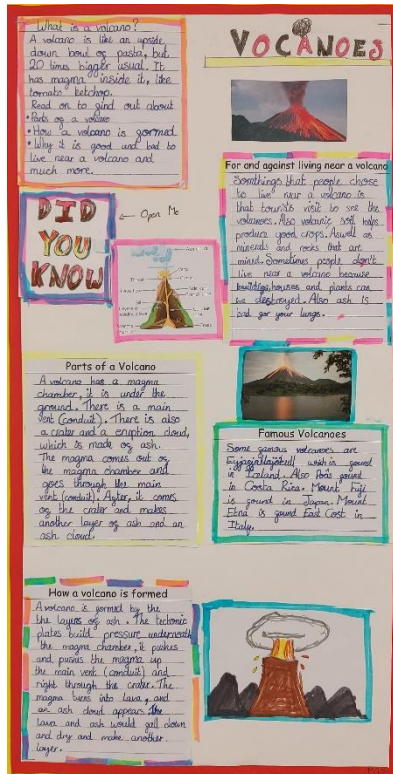 What is a volcano?
A volcano is like an upside
down bowl of pasta, but
20 times bigger usual. It
has magma inside it, like
tomato ketchop.
Read on to find out about
•Parts of a volvano
•How a volcano is formed
•Why it is good and bad to
live near a volcano and
much more.
VOCANOES
For and against living near a volcano
Somthings that people chose
to live near a volcano is
that tourists visit to see the
volcanoes. Also volcanic soil helps
produce good crops. Aswell as
minerals and rocks that are
mined. Sometimes people don't
live near a volcano because
buildings, houses and plants can
be destroyed. Also ash is
bad for your lungs.
DID
YOU
KNOW
← Open Me
Parts of a Volcano
A volcano has a magma
chamber, it is under the
ground. There is a main
vent (conduit). There is also
a crater and a eruption cloud,
which is made of ash.
The magma comes out of
the magma chamber and
goes through the main
vent (conduit). After, it comes
of the crater and makes
another layer of ash and an
ash cloud.
Famous Volcanoes
Some famous volcanoes are
wich is found
in Iceland. Also Poás found
in Costa Rica. Mount Fuji
is found in Japan. Mount
Etna is found East Cost in
Italy.
How a volcano is formed
A volcano is formed by the
the layers of ash. The tectonic
plates build pressure underneath
the magma chamber, it pushes
and pushes the magma up
the main vent (conduit) and
right through the crater. The
magma turns into lava, and
an ash cloud appears. The
lava and ash would fall down
and dry and make another
layer.